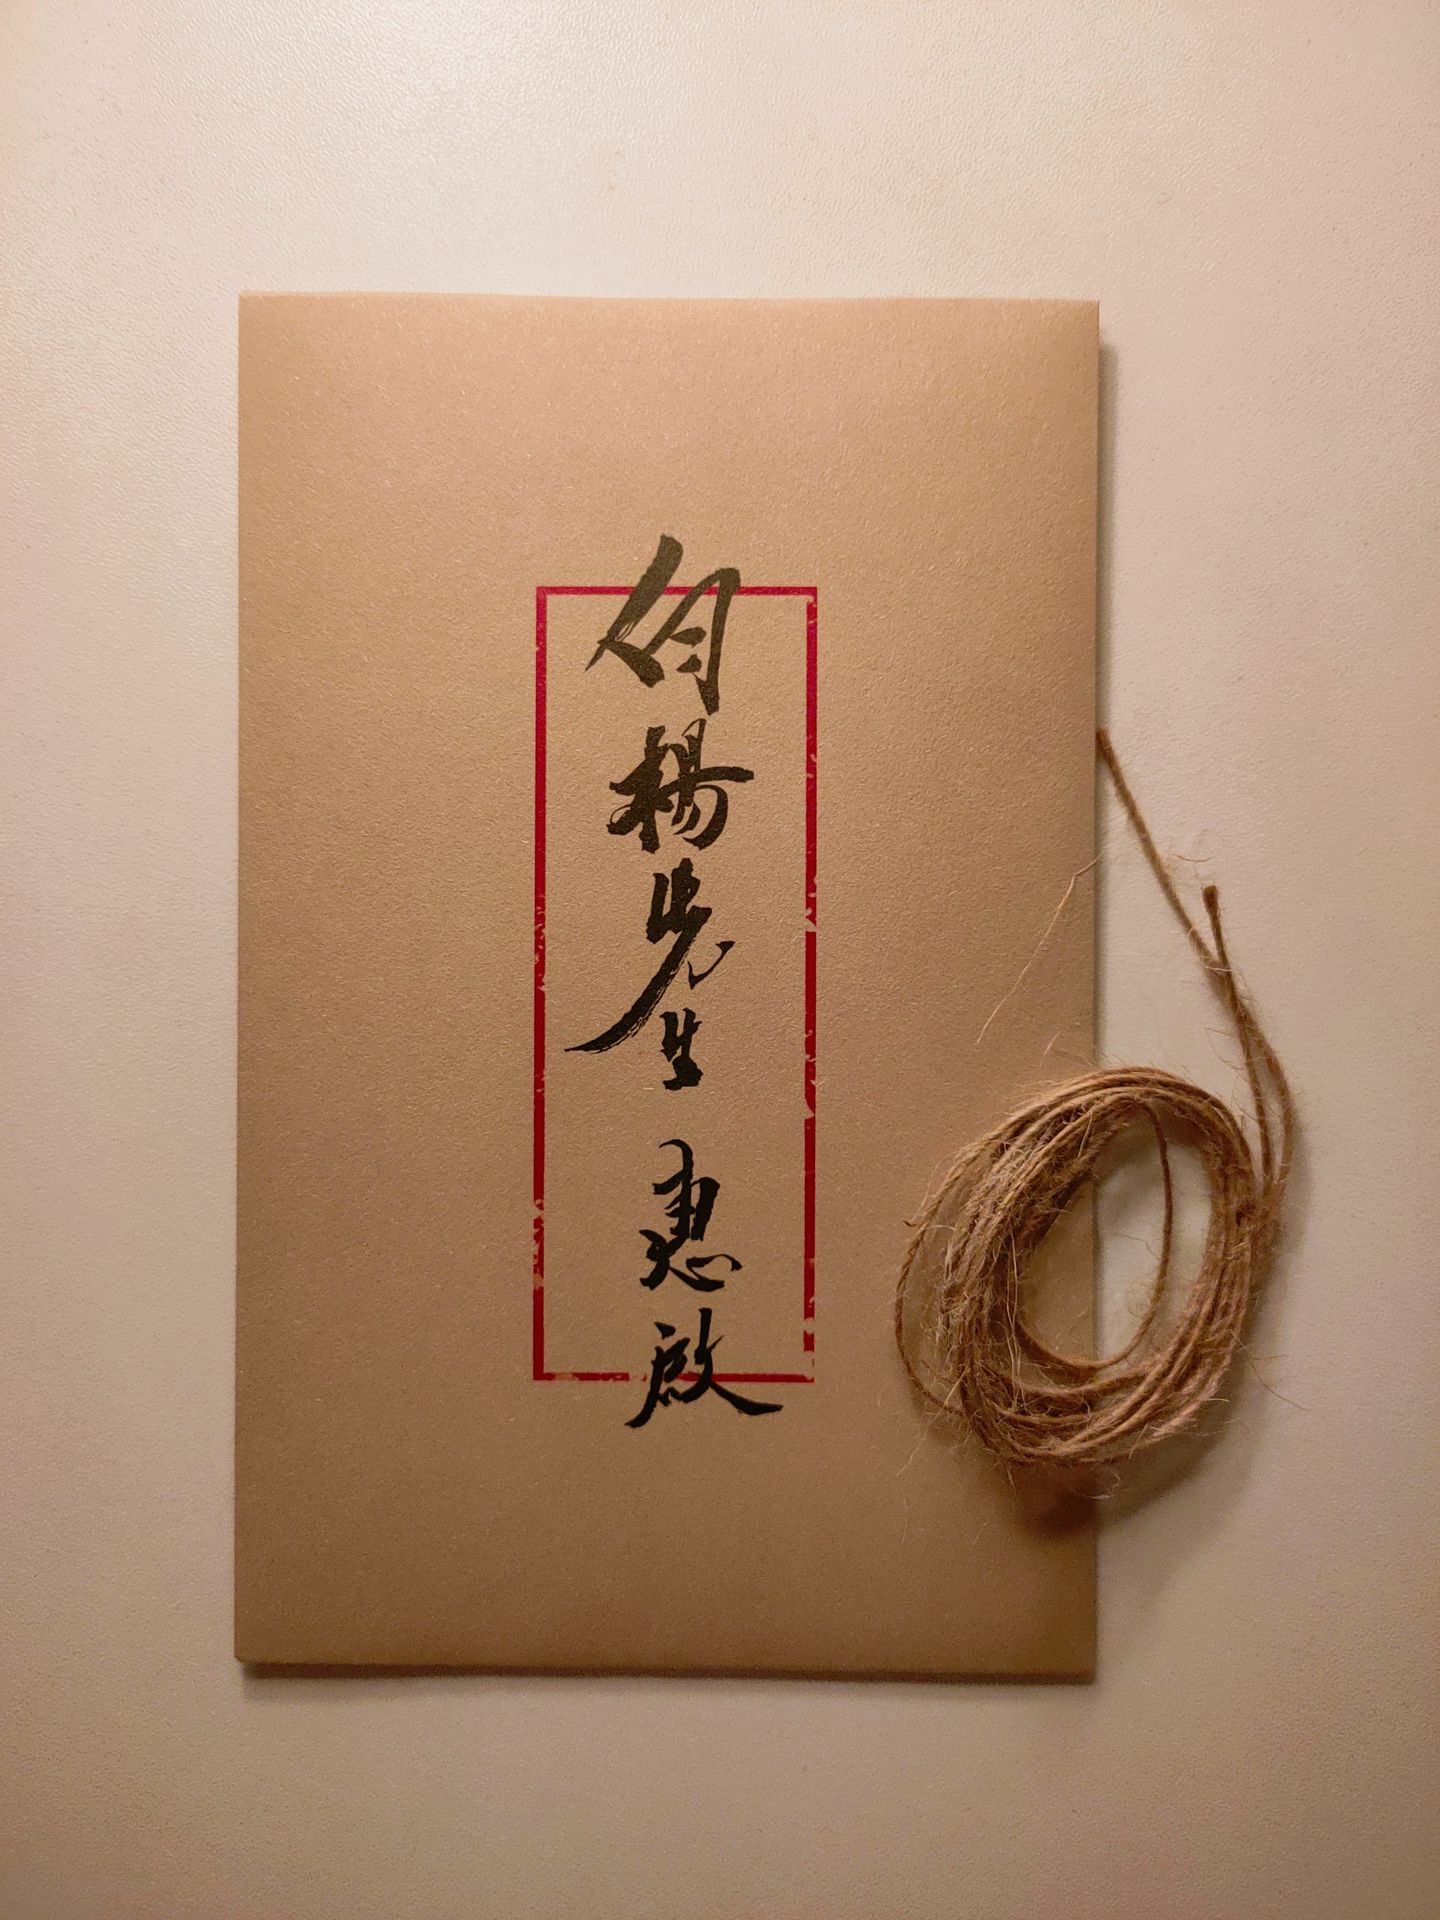 楊先生 惠啟